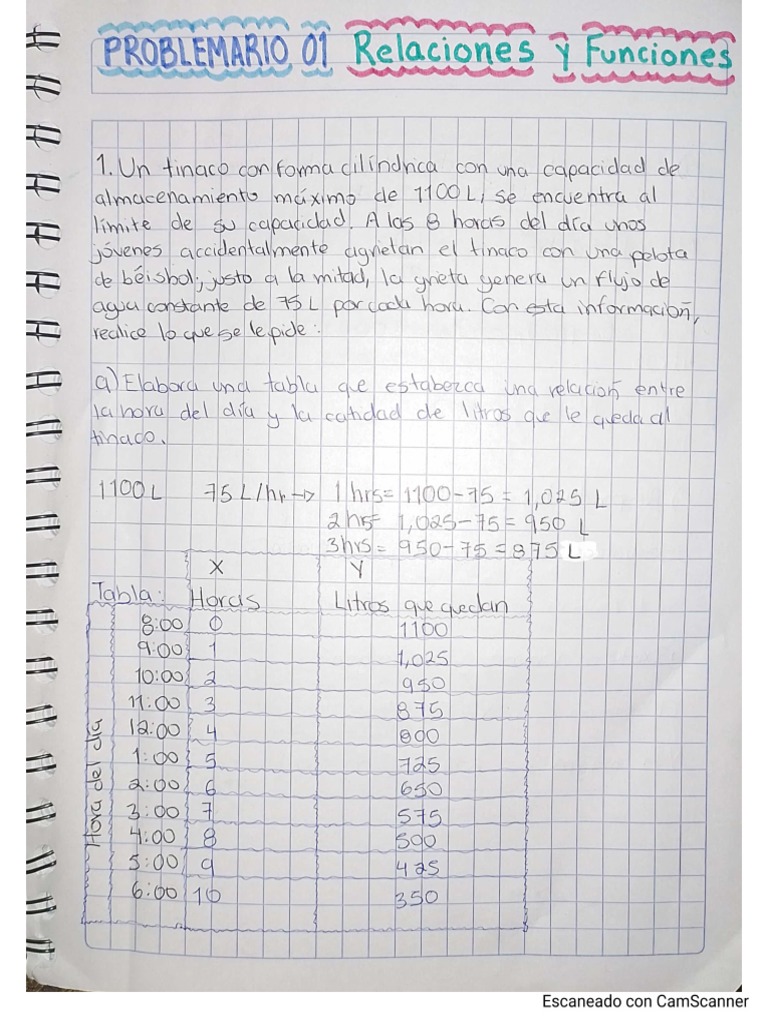 PROBLEMARIO 01 Relaciones y Funciones
1. Un tinaco con forma cilíndrica con una capacidad de
almacenamiento máximo de 1100 L, se encuentra al
límite de su capacidad. A las 8 horas del día unos
jóvenes accidentalmente agrietan el tinaco con una pelota
de béisbol, justo a la mitad, la grieta genera un flujo de
agua constante de 75 L por cada hora. Con esta información,
realice lo que se le pide:
a) Elabora una tabla que estabezca una relación entre
la hora del día y la catidad de litros que le queda al
tinaco.
1100 L 75 L/hr → 1 hrs = 1100-75 = 1,025 L
2 hrs = 1,025-75 = 950 L
3 hrs = 950-75 = 875 L
X Y
Tabla: Horas Litros que quedan
8:00 0 1100
9:00 1 1,025
10:00 2 950
11:00 3 875
12:00 4 800
1:00 5 725
2:00 6 650
3:00 7 575
4:00 8 500
5:00 9 425
6:00 10 350
Hora del día
Escaneado con CamScanner